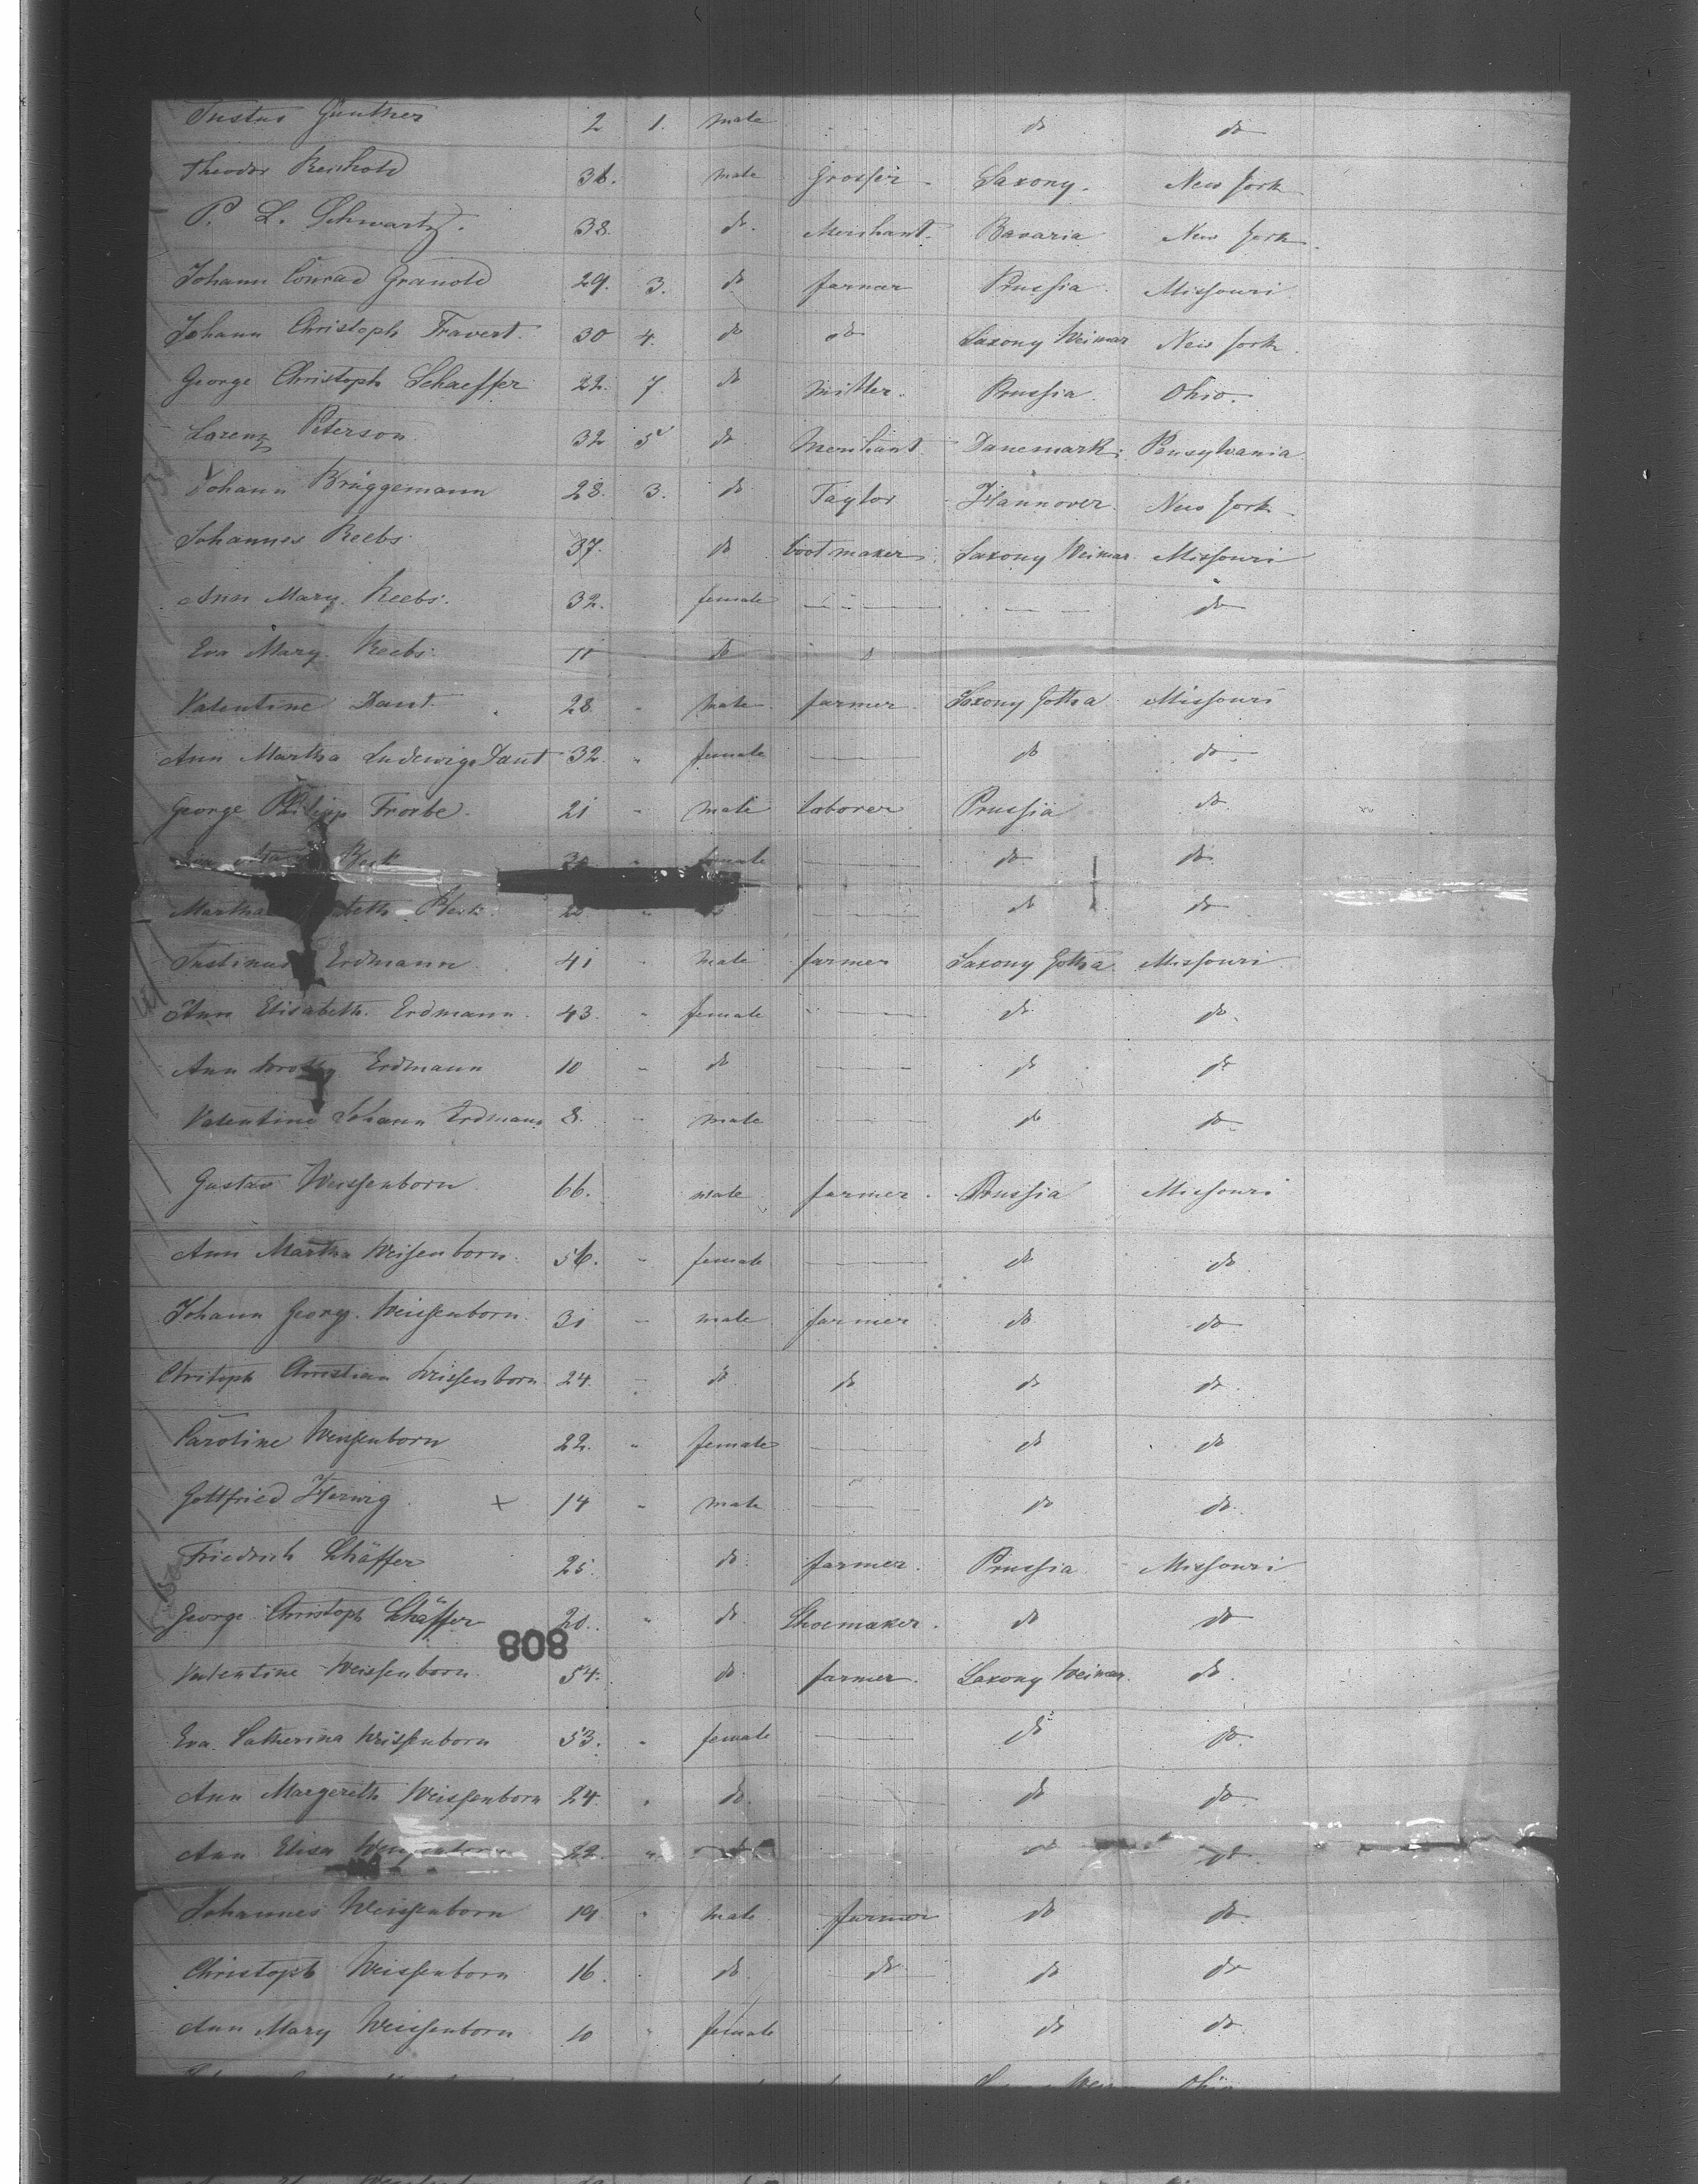 Justus Gunther 2 1. male do do
Theodor Reinhold 36. male Grosser Saxony. New York
P. L. Schwartz. 38. do. Merchant. Bavaria New York.
Johann Conrad Granold 29. 3. do farmar Prussia. Missouri.
Johann Christoph Travert. 30 4. do do Saxony Weimar New York.
George Christoph Schaeffer 22. 7. do Miller. Prussia. Ohio.
Lorenz Peterson. 32 5 do Merchant. Danemark. Pensylvania.
Johann Brüggemann 28. 3. do Taylor Hannover. New York
Johannes Reebs 37. do bootmaker. Saxony Weimar. Missouri
Ann Mary. Reebs. 32. female — — do
Eva Mary. Reebs. 11 do
Valentine Daut. 28. male. farmer. Saxony Gotha Missouri
Ann Martha Ludewiga Daut 32. " female — do do.
George Philipp Frorbe. 21 " male laborer Prussia do.
female — do. do.
Martha — do do
Justinus Erdmann. 41 " male farmer Saxony Gotha Missouri
Ann Elisabeth. Erdmann. 43. " female — do. do.
Ann Erdmann 10 " do — do do
Valentine Johann Erdmann 8. " male — do do.
Gustav Weissenborn 66. male farmer. Prussia Missouri
Ann Martha Weissenborn. 56. " female — do do.
Johann Georg. Weissenborn. 31 " male farmer do. do
Chritoph Christian Weissenborn 24. " do do do do.
Caroline Weissenborn 22. " female — do do
Gottfried Herwig. x 14 " male — do do.
Friedrich Schäffer 25. do. farmer. Prussia Missouri
George Christoph Schäffer 20. " do. Shoemaker. do do
808
Valentine Weissenborn. 54. do. farmer. Saxony Weimar. do.
Eva. Catherina Weissenborn 53. " female — do do.
Ann Margereth Weissenborn 24. " do. — do do.
Ann Elisa Weissenborn 22. " do do do.
Johannes Weissenborn 19. " male farmer do do.
Christoph Weissenborn 16. " do. do do do
Ann Mary Weissenborn 10 " female — do do.